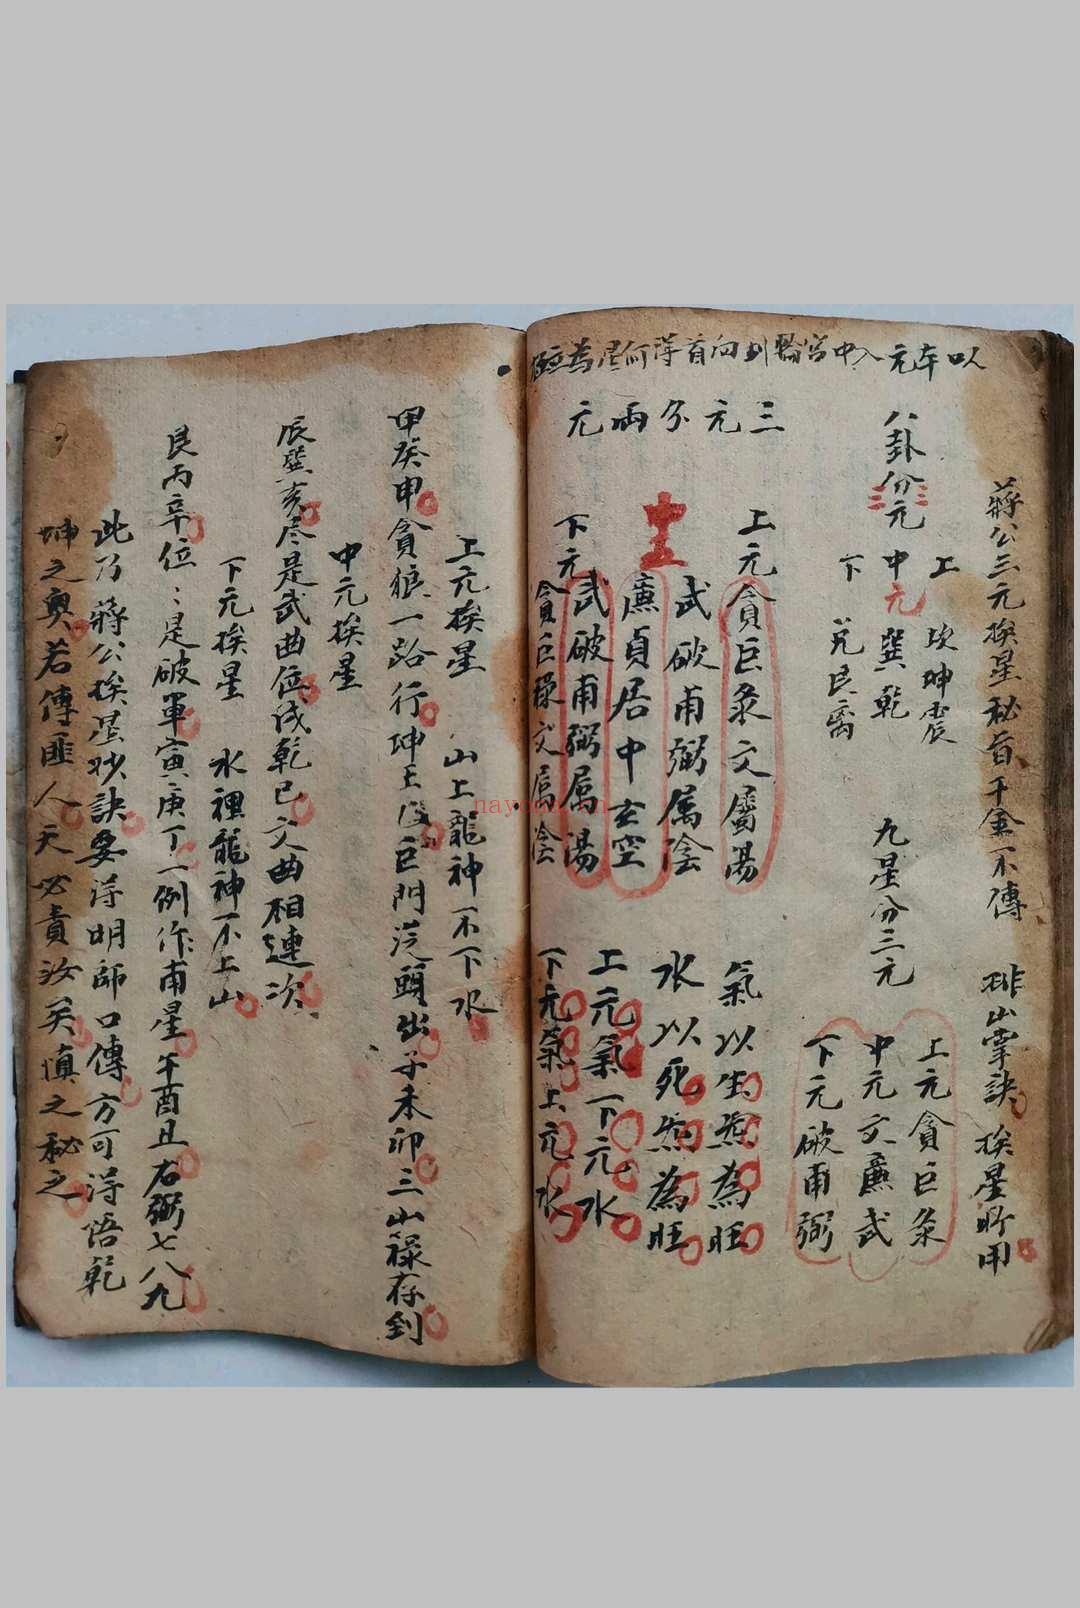 以本元入中宮輪到向首得何星為
蔣公三元挨星秘旨千金不傳 排山掌訣 挨星所用
八卦分元
上 坎坤震
中元 巽乾
下 兌艮離
九星分三元
上元貪巨祿
中元文廉武
下元破甫弼
三元分兩元
上元貪巨祿文屬陽
武破甫弼属陰
廉貞居中玄空
下元武破甫弼屬陽
貪巨祿文屬陰
氣以生氣為旺
水以死氣為旺
上元氣下元水
下元氣上元水
上元挨星 山上龍神不下水
甲癸申貪狼一路行坤壬乙巨門從頭出子未卯三山祿存到
中元挨星
辰巽亥尽是武曲位戌乾巳文曲相連次
下元挨星 水裡龍神不上山
艮丙辛位:是破軍寅庚丁一例作甫星午酉丑右弼七八九
此乃蔣公挨星妙訣要得明師口傳方可得悟乾
坤之奧若傳匪人天必責汝矣慎之秘之
nayo